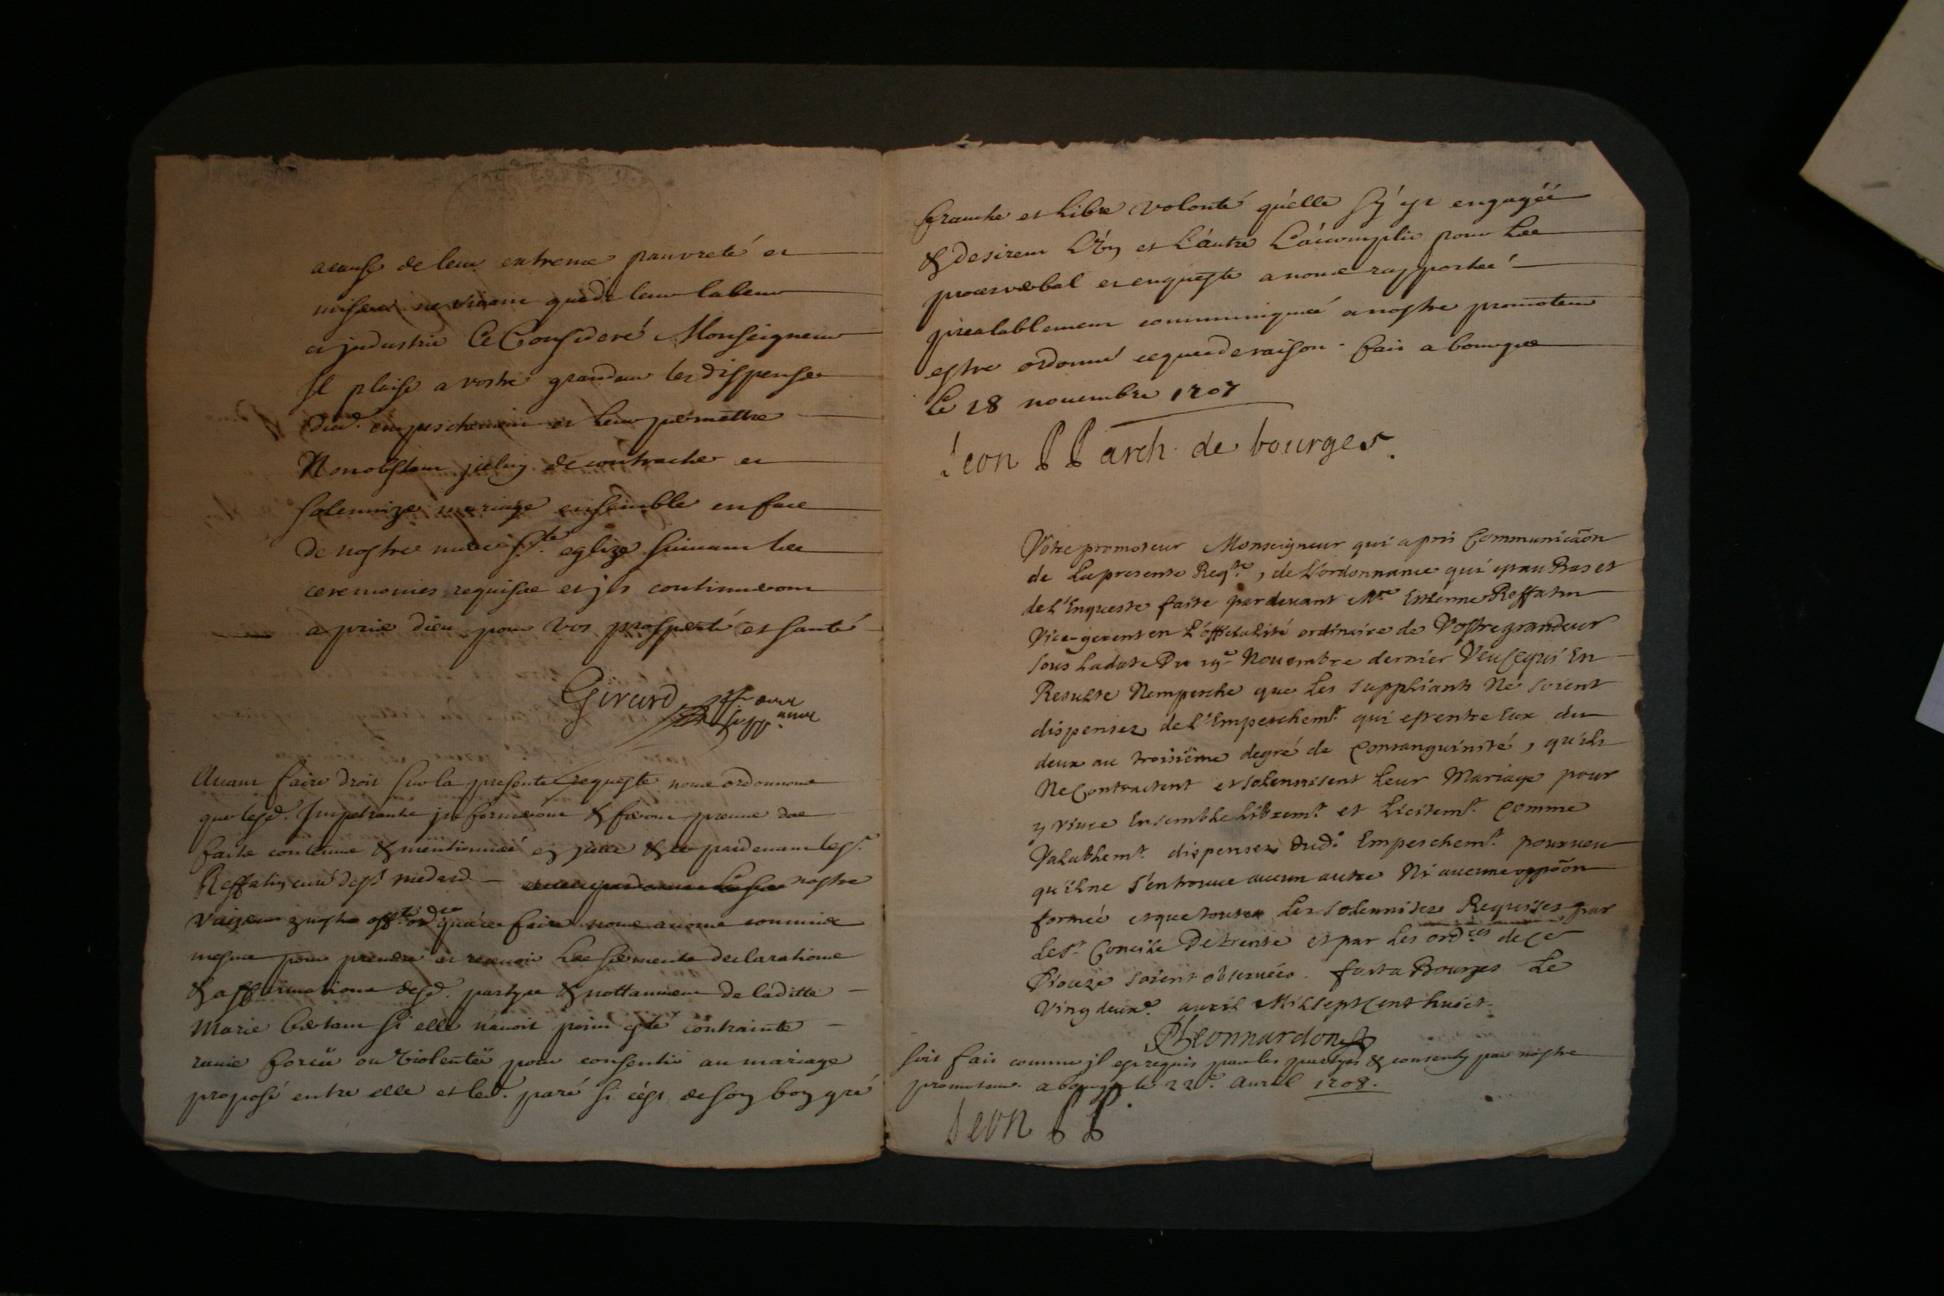 a cause de leur extreme pauvreté et
misere ne vivant que de leur labeur
et industrie Ce Consideré Monseigneur
Il plaise a vostre grandeur les dispenser
dud. empeschement et leur permettre
Nonobstant jceluy de contracter et
solemnizer mariage ensemble en face
de nostre mere ste. eglize suivant les
ceremonies requises et jls continueront
a prier dieu pour vos prosperité et santé
Girard
Avant faire droit sur la presente requeste nous ordonnons
que lesd. Impetrants jnformeront & feront preuve des
faits contenus & mentionnés en jcelle & ce pardevant le sr.
Reffatin curé de st medard nostre
quà ce faire nous avons commis
mesme pour prendre et recevoir Les serments declarations
& affirmations desd. partyes & nottamment de laditte
Marie si elle n'avoit point esté contrainte
ravie forcëe ou violentëe pour consentir au mariage
proposé entre elle et led. paré si c'est de son bon gré
franche et Libre volonté quélle sÿ est engagéé
& desirent L'ún et L'autre L'accomplir pour Les
procesverbal et enqueste a nous rapportéé
prealablement communiquéé a nostre promoteur
estre ordonné ce que de raison. fait a bourges
Le 28 novembre 1707
Leon PP arch. de bourges.
Vôtre promoteur Monseigneur qui a pris Communicãon
de La presente Reqte., de L'ordonnance qui est au Bas et
de L'Enqueste faite pardevant Mre Estienne Reffatin
Vice-gerent en L'officialité ordinaire de Vostre grandeur
sous La date Du 29e Novembre dernier Veu Ce qui En
Resulte N'empesche que Les suppliants Ne soient
dispensez de L'Empeschemt. qui est entre Eux du
deux au troisiëme degré de Consanguinité, qu'ils
Ne Contractent et solennisent Leur Mariage pour
y vivre Ensemble Libremt. et Licitemt. Comme
Valablemt. dispensez dudt. Empeschemt. pourveu
qu'il ne s'en trouve aucun autre Ni aucune oppõon
formée et que toutes Les solennitez Requises par
Le st. Concile De trente et par Les ordces de Ce
Dioceze soient observées. fait a Bourges Le
Vingdeuxe. avril Mil sept Cent huict.
Leonnardon
soit fait comme jl est requis par les partyes & consenty par nostre
promoteur. a bourges le 22e. Avril 1708.
Leon PP.